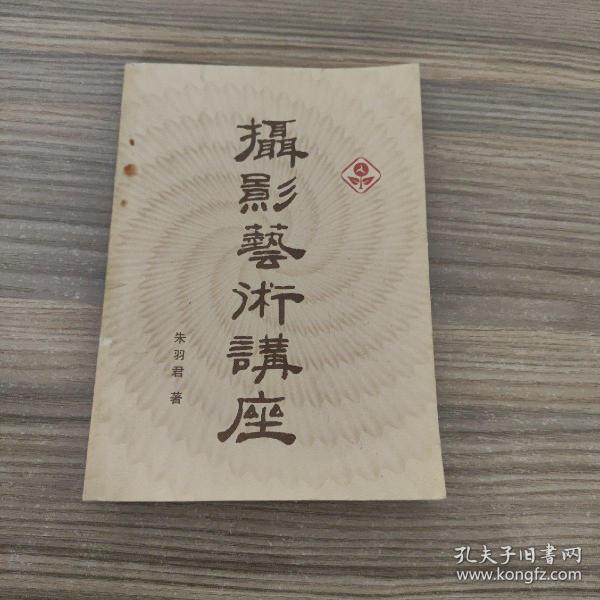 攝影藝術講座
朱羽君 著
孔夫子旧書网
www.kongfz.com